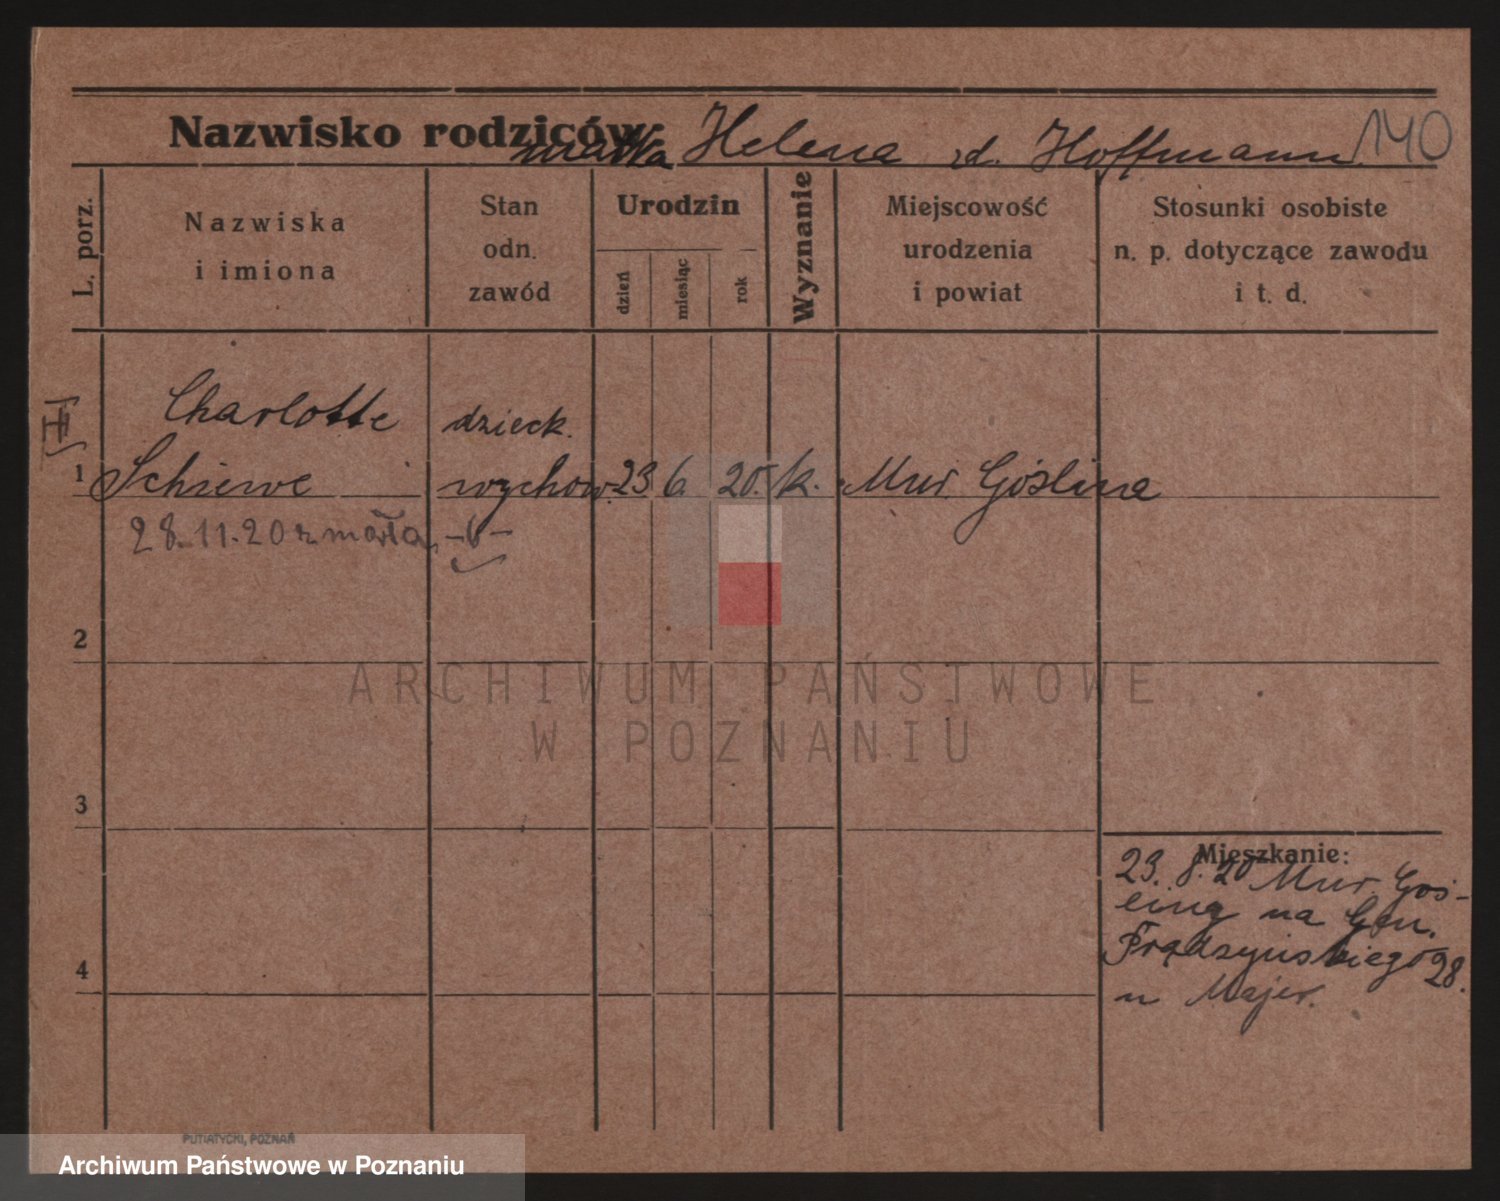 Nazwisko rodziców:
matka Helena zd. Hoffmann. 140
L. porz.
Nazwiska
i imiona
Stan
odn.
zawód
Urodzin
dzień
miesiąc
rok
Wyznanie
Miejscowość
urodzenia
i powiat
Stosunki osobiste
n. p. dotyczące zawodu
i t. d.
II
Charlotte dzieck.
1 Schiewe wychow. 23 6. 20. k. Mur. Goślina
28.11.20 zmarła
2
3
4
Mieszkanie:
23. 8. 20 Mur. Goś-
liny na Gen.
Prądzyńskiego 28.
u Majer.
PUTIATYCKI, POZNAŃ
ARCHIWUM PAŃSTWOWE
W POZNANIU
Archiwum Państwowe w Poznaniu